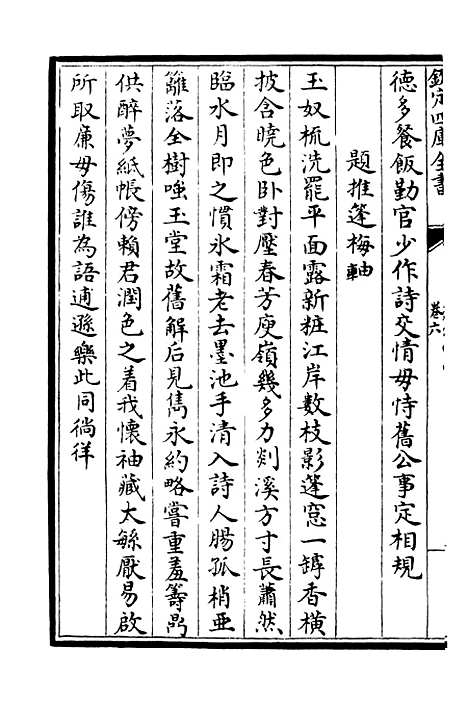 欽定四庫全書
卷六
德多餐飯勤官少作詩交情毋恃舊公事定相規
題推篷梅軸
玉奴梳洗罷平面露新粧江岸數枝影篷窓一罅香橫
披含曉色卧對壓春芳庾嶺幾多力剡溪方寸長蕭然
臨水月即之慣氷霜老去墨池手清入詩人腸孤梢亜
籬落全樹嗤玉堂故舊解后見雋永約略嘗重羞籌卨
供醉夢紙帳傍賴君潤色之着我懷袖藏太繇厭易啟
所取廉毋傷誰為語逋遜樂此同徜徉